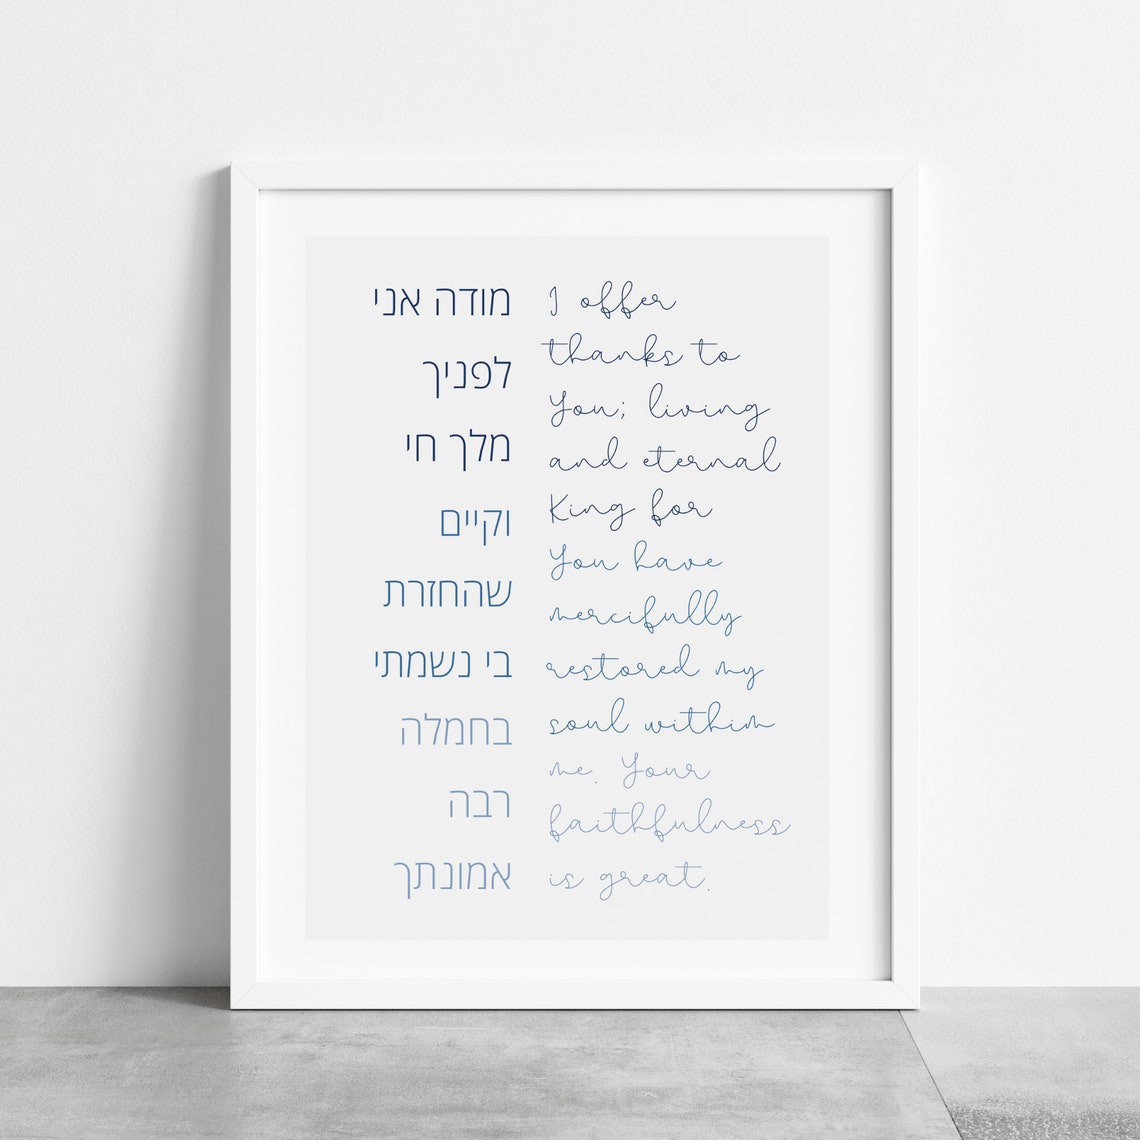 מודה אני
לפניך
מלך חי
וקיים
שהחזרת
בי נשמתי
בחמלה
רבה
אמונתך
I offer
thanks to
You; living
and eternal
King for
You have
mercifully
restored my
soul within
me. Your
faithfulness
is great.